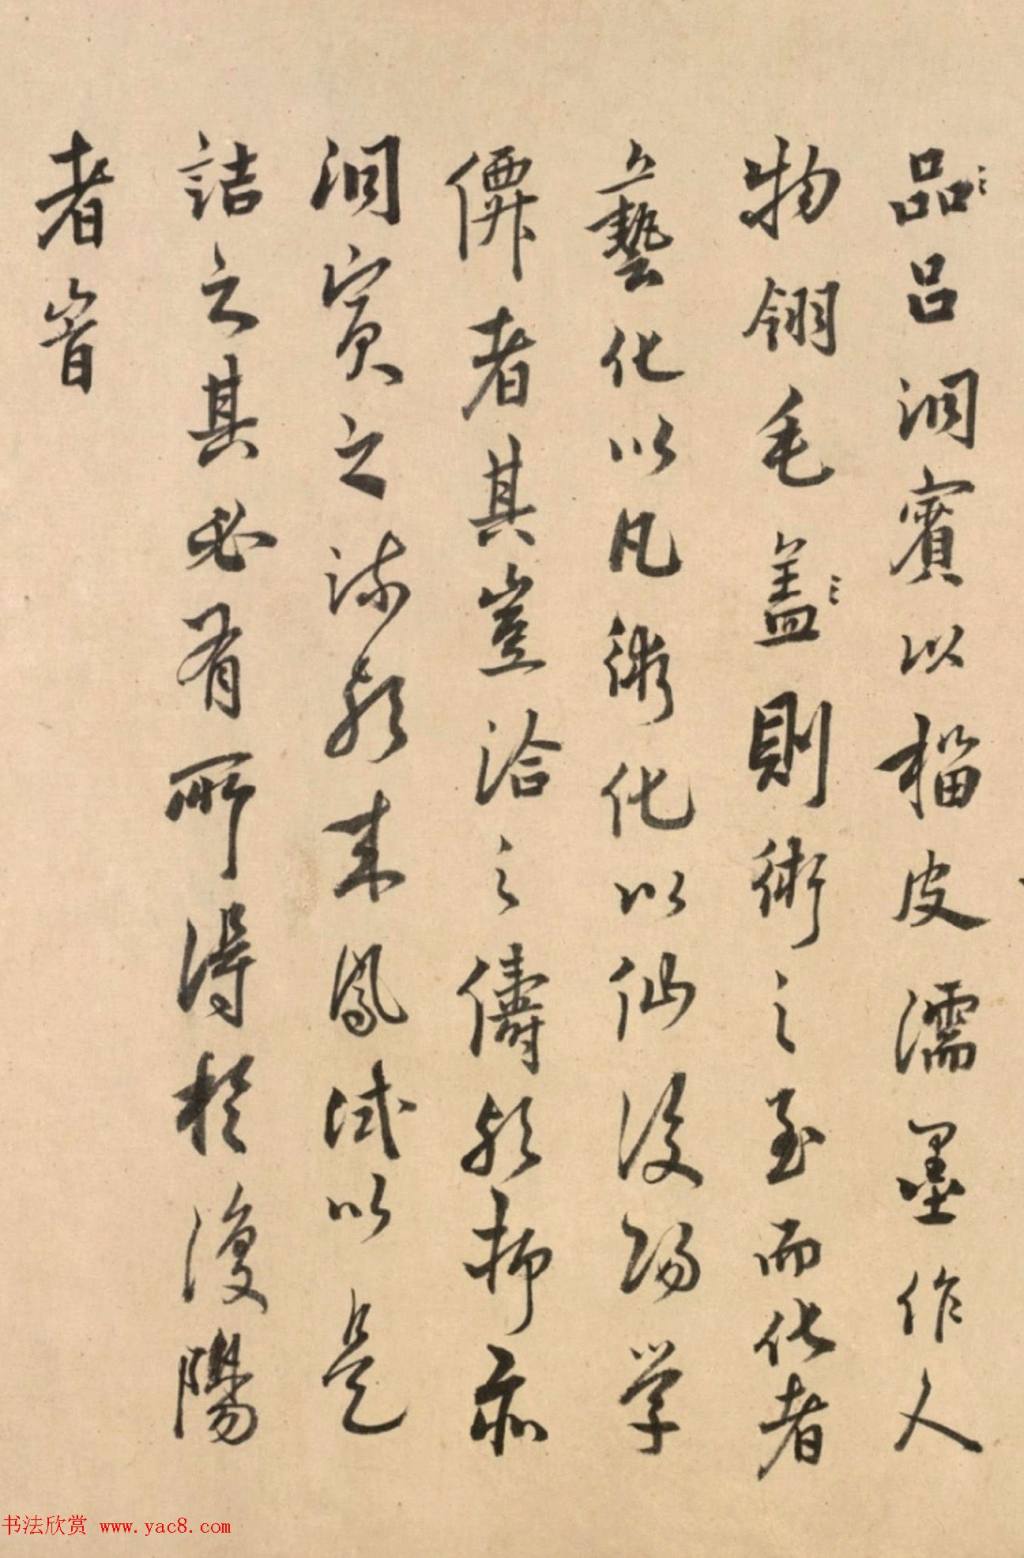 品〻呂洞賓以榴皮濡墨作人
物翎毛盖〻則術之至而化者
也藝化以凡術化以仙復陽学
僊者其豈洽之儔歟抑亦
洞賓之流歟来鳳試以是
詰之其必有所得於復陽
者
书法欣赏 www.yac8.com